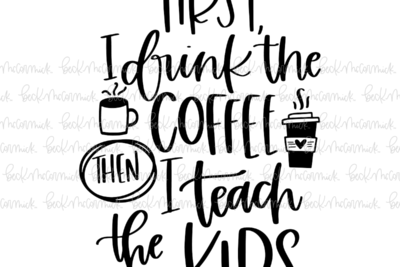 FIRST,
I drink the
COFFEE
THEN I teach
the KIDS